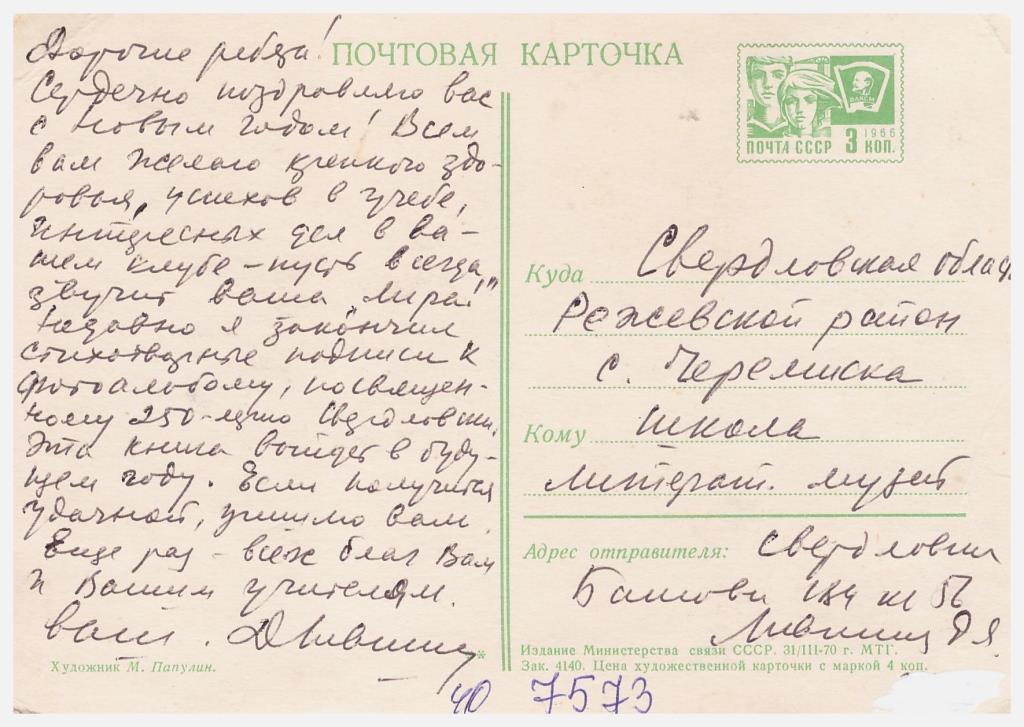 Дорогие ребята!
Сердечно поздравляю вас
с Новым годом! Всем
вам желаю крепкого здо-
ровья, успехов в учебе,
интересных дел в ва-
шем клубе – пусть всегда
звучит ваша "Лира"!
Недавно я закончил
стихотворные подписи к
фотоальбому, посвящен-
ному 250-летию Свердловска.
Эта книга выйдет в буду-
щем году. Если получится
удачной, пришлю вам.
Еще раз – всех благ Вам
и Вашим учителям.
Ваш. ДЛившиц
Художник М. Папулин.
ПОЧТОВАЯ КАРТОЧКА
ВЛКСМ
1966
ПОЧТА СССР 3 КОП.
Куда Свердловская област
Режевской район
с. Черемиска
Кому школа
литерат. музей
Адрес отправителя: Свердловск
Бажова
Лившиц Д Я
Издание Министерства связи СССР. 31/III-70 г. МТГ.
Зак. 4140. Цена художественной карточки с маркой 4 коп.
*
ЧО 7573